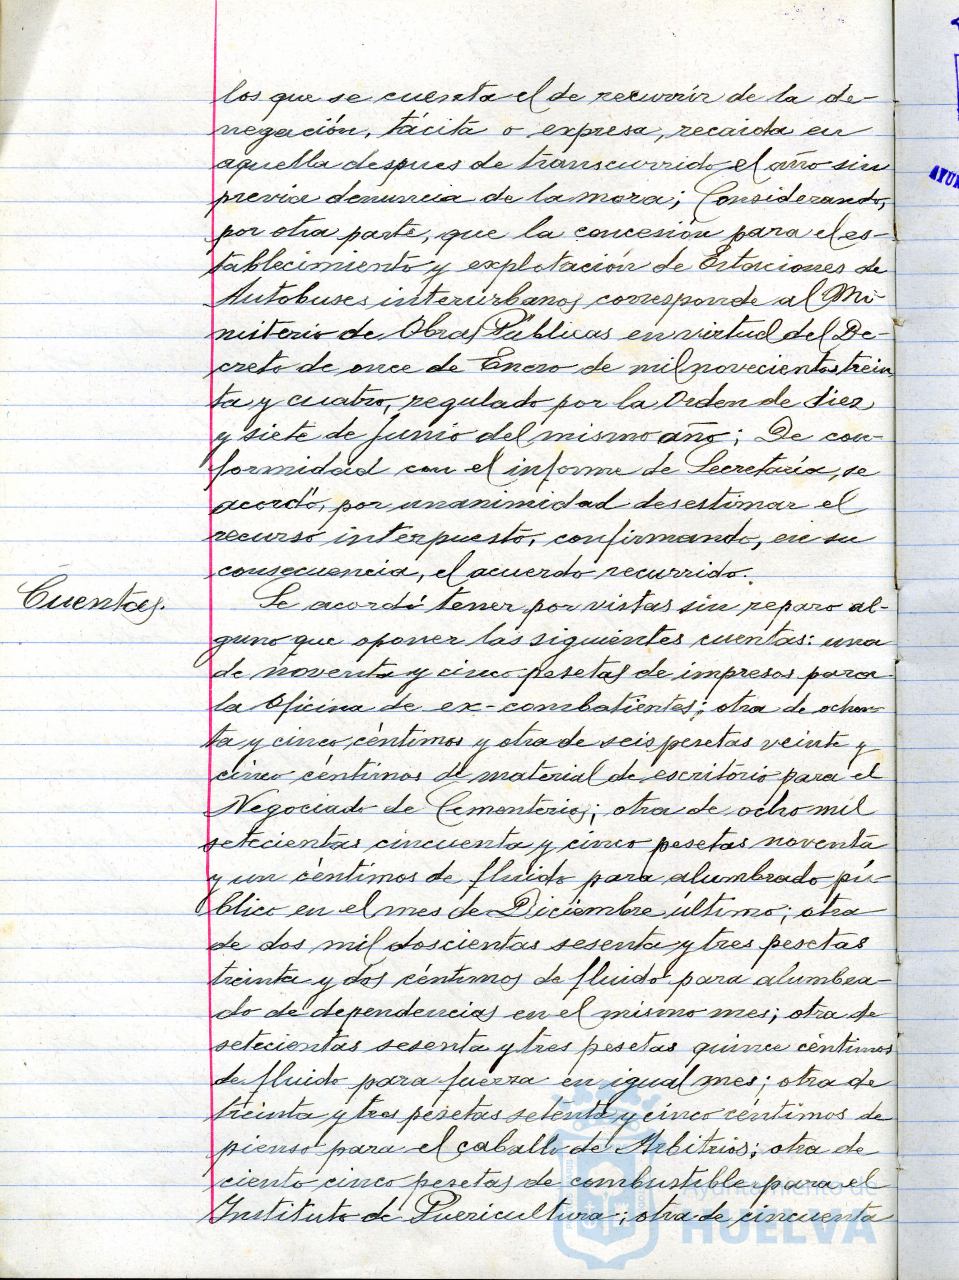 los que se cuenta el de recurrir de la de-
negación, tácita o expresa, recaida en
aquella despues de transcurrido el año sin
previa denuncia de la mora; Considerando,
por otra parte, que la concesión para el es-
tablecimiento y explotación de Estaciones de
Autobuses interurbanos corresponde al Mi-
nisterio de Obras Públicas en virtud del De-
creto de once de Enero de mil novecientos trein-
ta y cuatro, regulado por la Orden de diez
y siete de Junio del mismo año; De con-
formidad con el informe de Secretaría, se
acordó, por unanimidad desestimar el
recurso interpuesto, confirmando, en su
consecuencia, el acuerdo recurrido.
Cuentas.
Se acordó tener por vistas sin reparo al-
guno que oponer las siguientes cuentas: una
de noventa y cinco pesetas de impresos para
la Oficina de ex-combatientes; otra de ochen-
ta y cinco céntimos y otra de seis pesetas veinte y
cinco céntimos de material de escritorio para el
Negociado de Cementerios; otra de ocho mil
setecientas cincuenta y cinco pesetas noventa
y un céntimos de fluido para alumbrado pú-
blico en el mes de Diciembre último; otra
de dos mil doscientas sesenta y tres pesetas
treinta y dos céntimos de fluido para alumbra-
do de dependencias en el mismo mes; otra de
setecientas sesenta y tres pesetas quince céntimos
de fluido para fuerza en igual mes; otra de
treinta y tres pesetas setenta y cinco céntimos de
pienso para el caballo de Arbitrios; otra de
ciento cinco pesetas de combustible para el
Instituto de Puericultura; otra de cincuenta
Ayuntamiento de
HUELVA